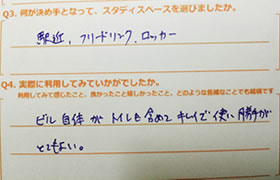 Q3. 何が決め手となって、スタディスペースを選びましたか。
駅近、フリードリンク、ロッカー
Q4. 実際に利用してみていかがでしたか。
利用してみて感じたこと、良かったこと嬉しかったこと、どのような些細なことでも結構です
ビル自体がトイレも含めてキレイで使い勝手が
とてもよい。